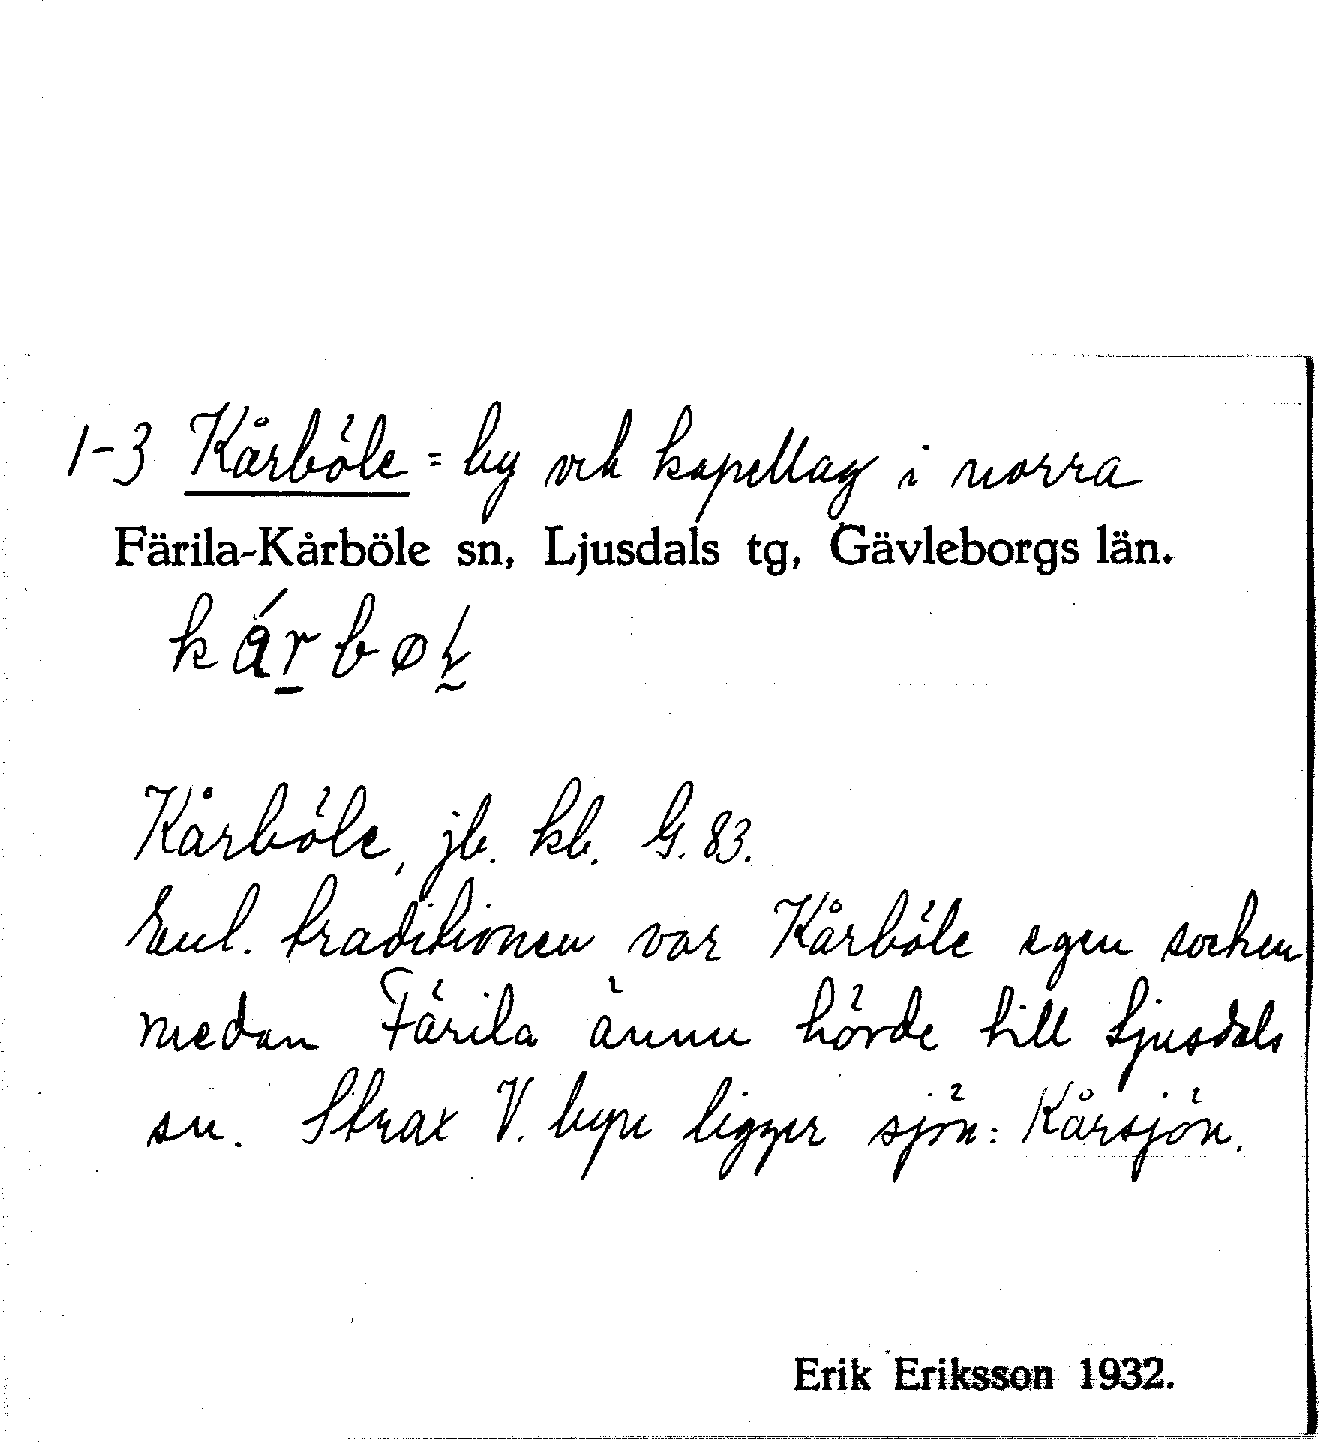 1-3 Kårböle = by och kapellag i norra
Färila-Kårböle sn, Ljusdals tg, Gävleborgs län.
Kårböle, jb. kb. G. 83.
Enl. traditionen var Kårböle egen socken
medan Färila ännu hörde till Ljusdals
sn. Strax V. byn ligger sjön: Kårsjön.
Erik Eriksson 1932.